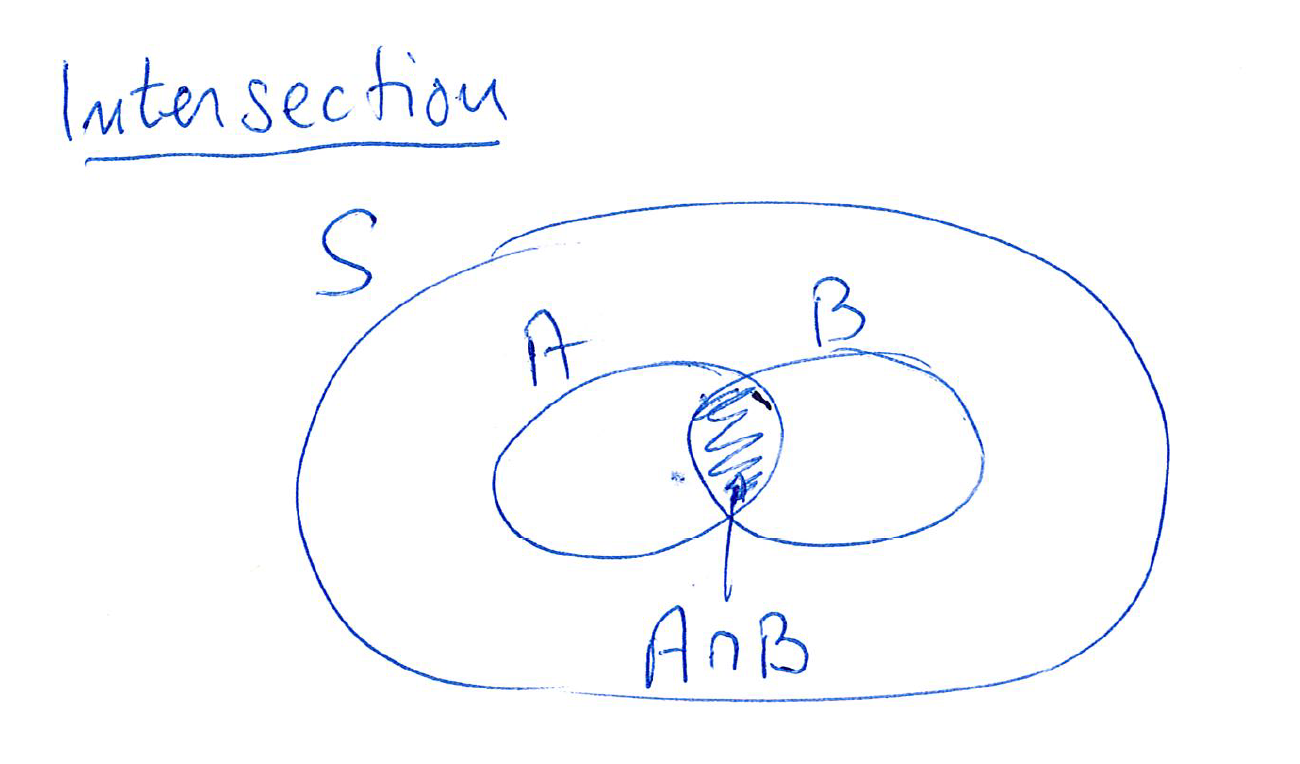 Intersection
S
A
B
A∩B